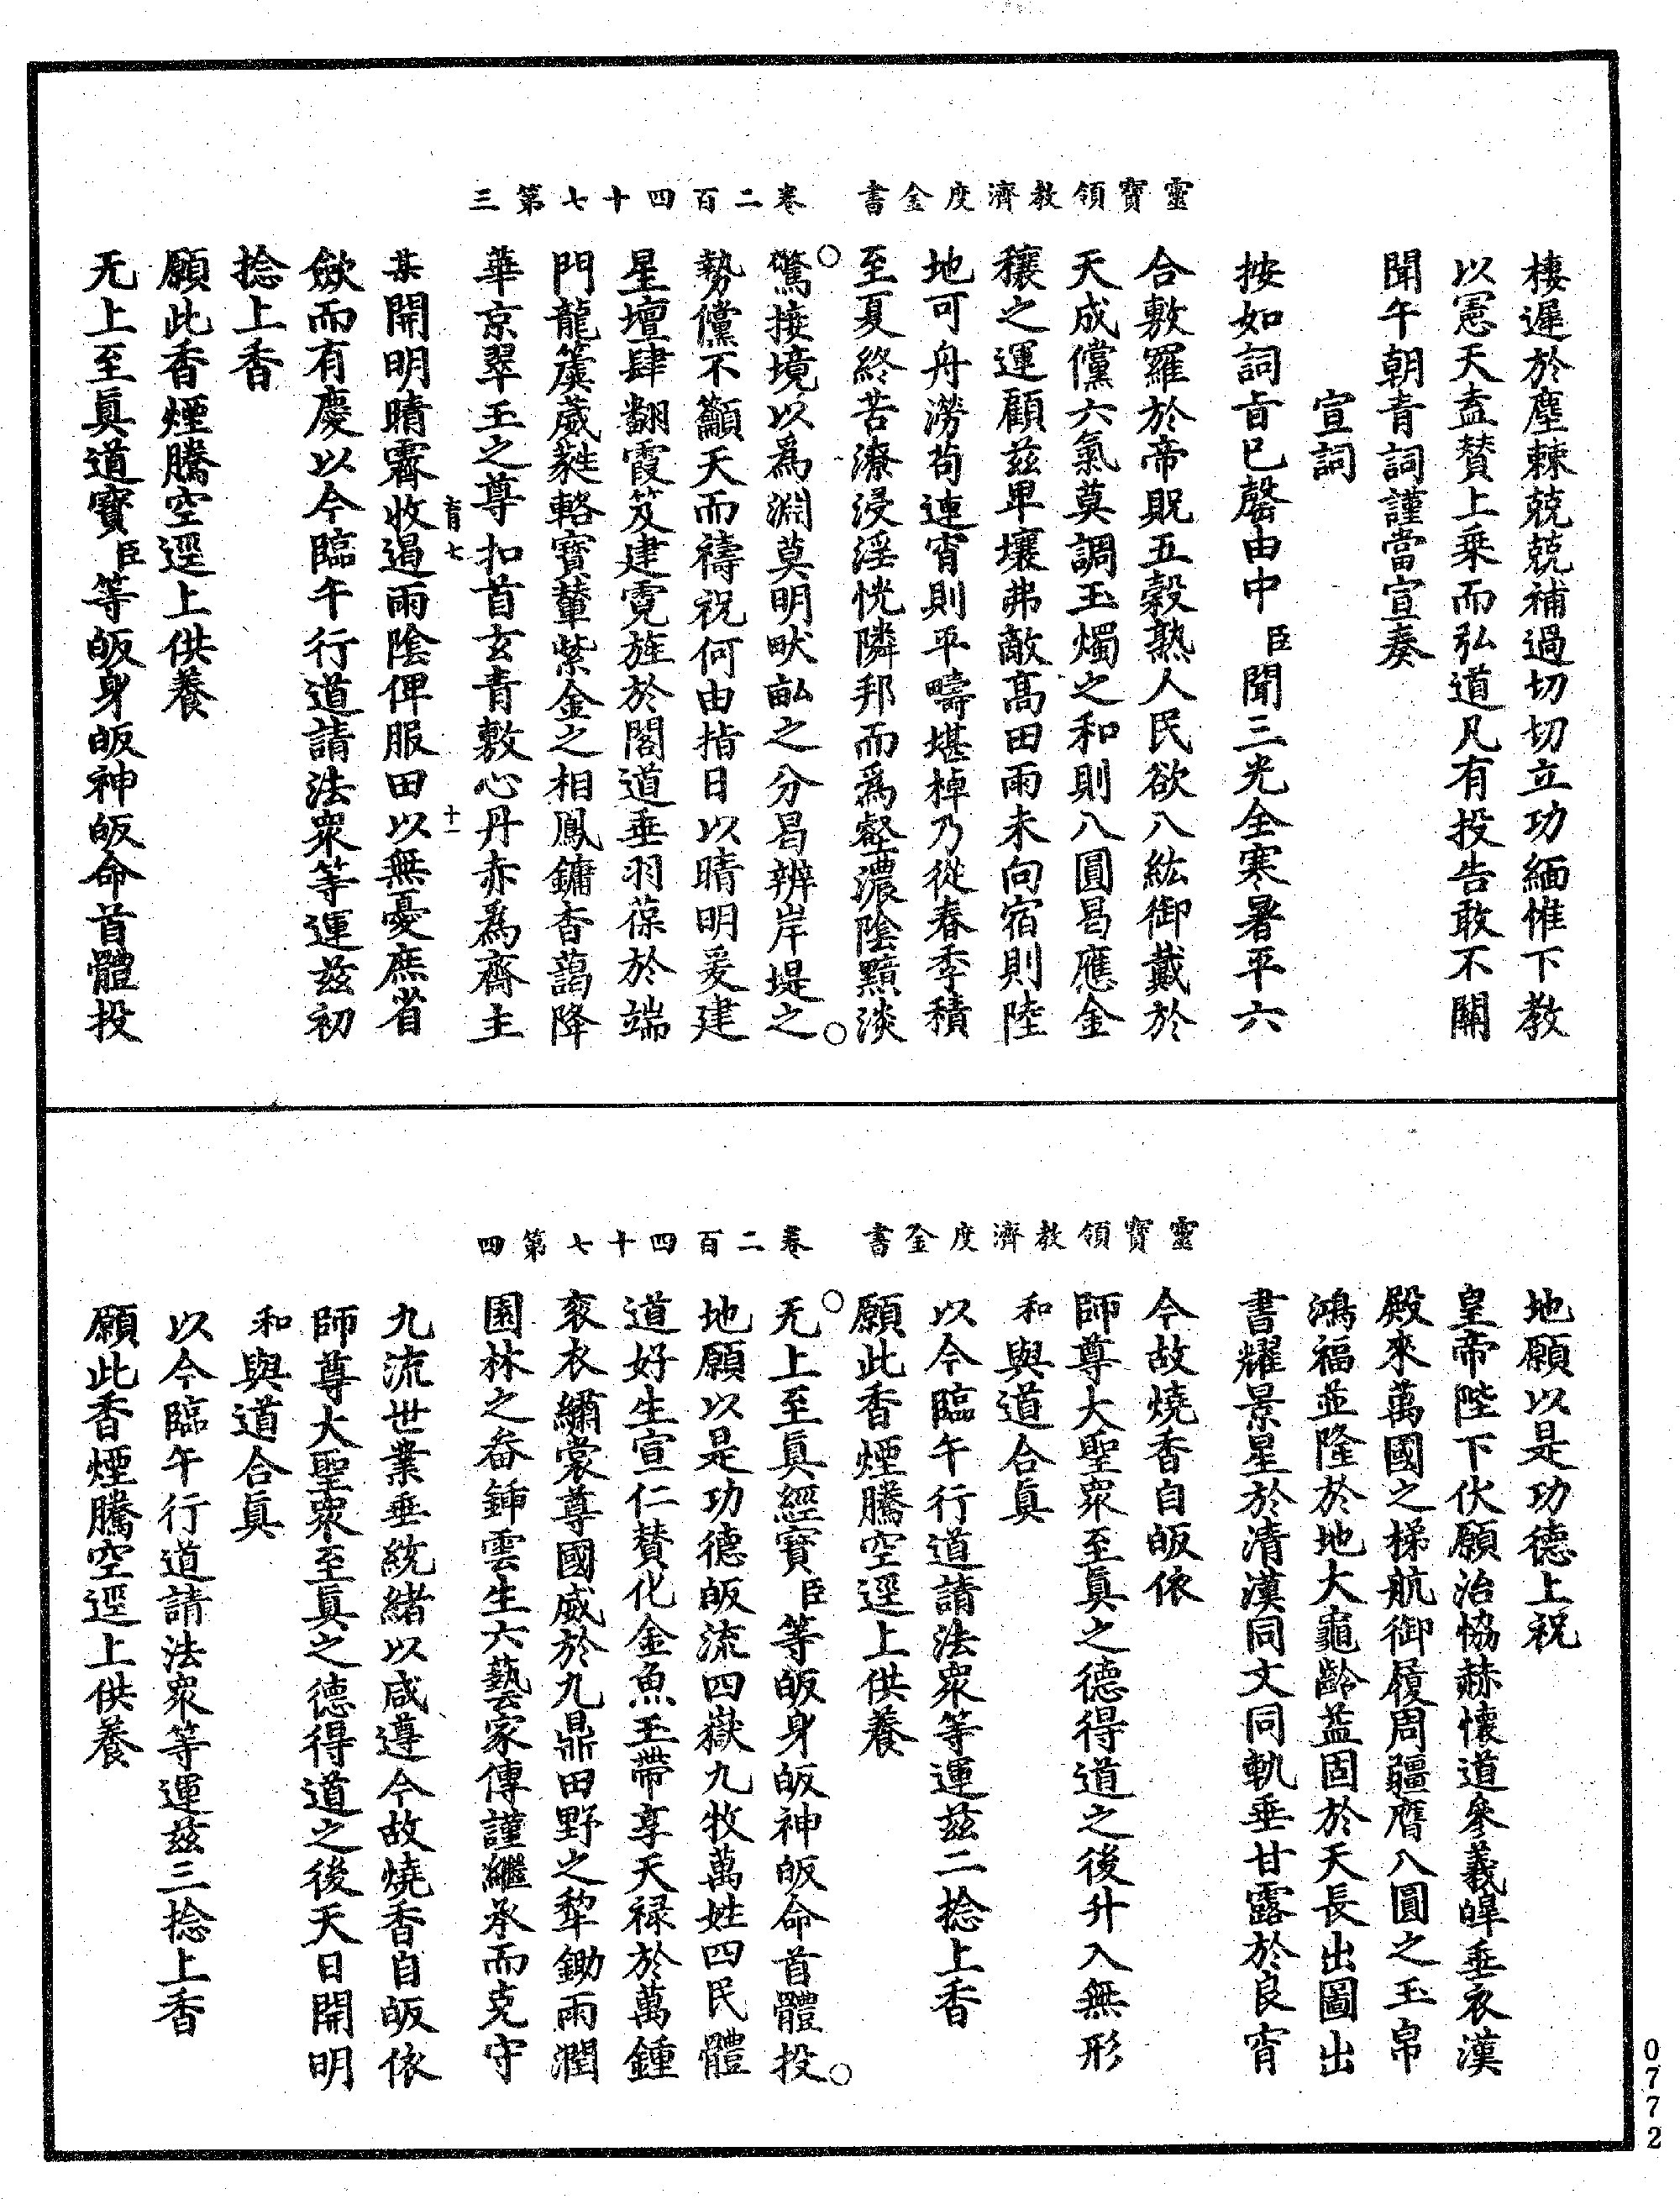 靈寶領教濟度金書　卷二百四十七第三
棲遲於塵棘兢兢補過切切立功緬惟下教
以憲天盍賛上乘而弘道凡有投告敢不關
聞午朝青詞謹當宣奏
宣詞
按如詞旨已罄由中臣聞三光全寒暑平六
合敷羅於帝貺五穀熟人民欲八紘御戴於
天成儻六氣莫調玉燭之和則八圓曷應金
穰之運顧兹旱壤弗敵高田雨未向宿則陸
地可舟澇苟連宵則平疇堪棹乃從春季積
至夏終苦潦浸淫恍隣邦而爲壑濃陰黯淡
驚接境以爲淵莫明畎畝之分曷辨岸堤之
勢儻不籲天而禱祝何由指日以晴明爰建
星壇肆翻霞笈建霓旌於閣道垂羽葆於端
門龍簴葳蕤輅寶輦紫金之相鳳鏞杳藹降
華京翠玉之尊扣首玄青敷心丹赤爲齋主
某開明晴霽收遏雨陰俾服田以無憂庶省
斂而有慶以今臨午行道請法衆等運兹初
捻上香
願此香煙騰空逕上供養
无上至真道寶臣等皈身皈神皈命首體投
育七
十一
靈寶領教濟度金書　卷二百四十七第四
地願以是功德上祝
皇帝陛下伏願治恊赫懷道參羲皡垂衣漢
殿來萬國之梯航御履周疆膺八圓之玉帛
鴻福並隆於地大龜齡益固於天長出圖出
書耀景星於清漢同文同軌垂甘露於良宵
今故燒香自皈依
師尊大聖衆至真之德得道之後升入無形
和與道合真
以今臨午行道請法衆等運兹二捻上香
願此香煙騰空逕上供養
无上至真經寶臣等皈身皈神皈命首體投
地願以是功德皈流四嶽九牧萬姓四民體
道好生宣仁賛化金魚玉帶享天禄於萬鍾
袞衣繡裳尊國威於九鼎田野之犂鋤雨潤
園林之畚鍤雲生六藝家傳謹繼承而克守
九流世業垂統緒以咸遵今故燒香自皈依
師尊大聖衆至真之德得道之後天日開明
和與道合真
以今臨午行道請法衆等運兹三捻上香
願此香煙騰空逕上供養
0772